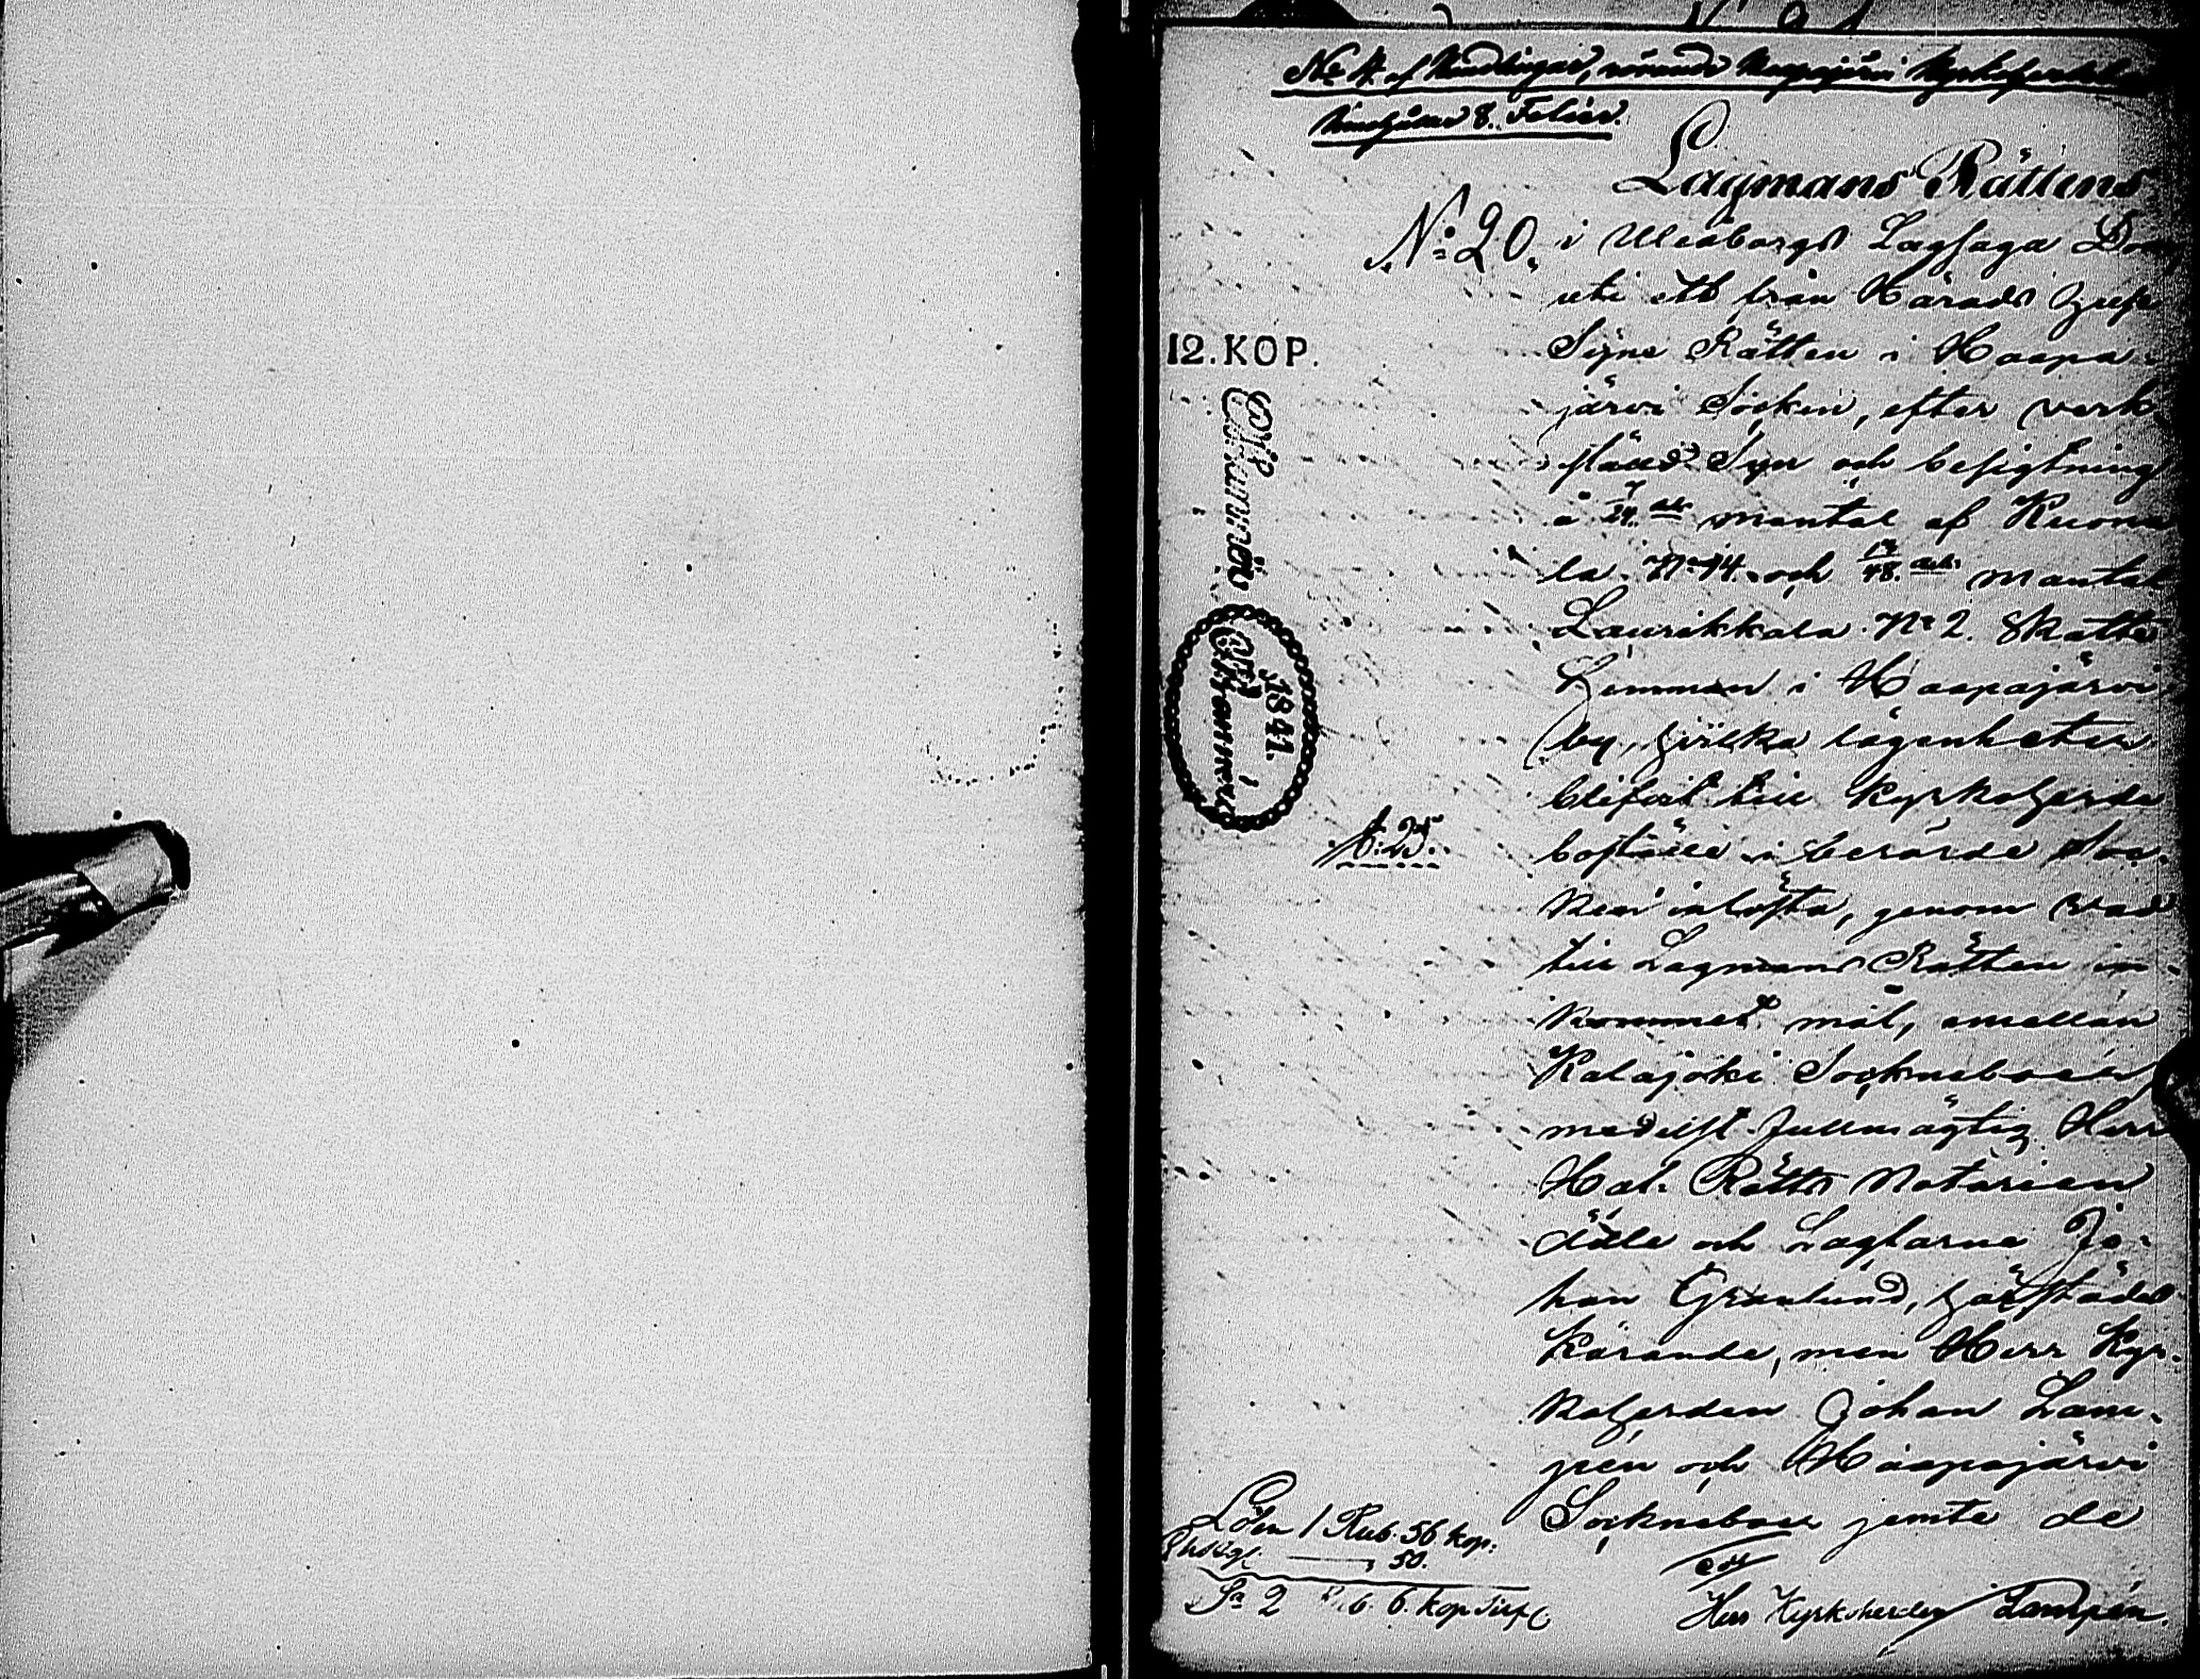 No 4 af Handlingar, rörande Haapajärvi Kyrkoherdebol
innehåller 8. Folier.
Lagmans Rättens
No 20. i Uleåborgs Lagsaga Dom
uti ett från Härads Huse
Syns Rätten i Haapa-
järvi Socken, efter verk-
stäld Syn och besigtning
å 7/24.dels mantal af Kuona
la No 14. och 13/48.dels mantal
Laurikkala No 2. Skatte
Hemman i Haapajärvi
by, hvilka lägenheter
blifvit till Kyrkoherde
boställe i berörde Soc-
ken inlösta, genom vad
till Lagmans Rätten in-
kommet mål, emellan
Kalajoki Sockneboer
medelst fullmägtig Herr
Hof Rätts Notarien
och Lagläsaren Jo-
han Granlund, härstädes
Kärande, men Herr Kyr-
koherden Johan Lam-
pén och Haapajärvi
Sockneboer jemte de
12. KOP.
1841.
f. 25.
Lösen 1 Rub. 56 kop.
50.
Sa 2 Rub. 6. kop Silf
Herr Kyrkoherden Lampén.